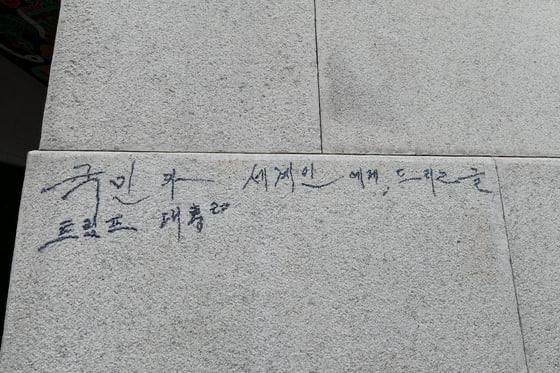 국민과 세계인 에게 드리는 글
트럼프 대통령